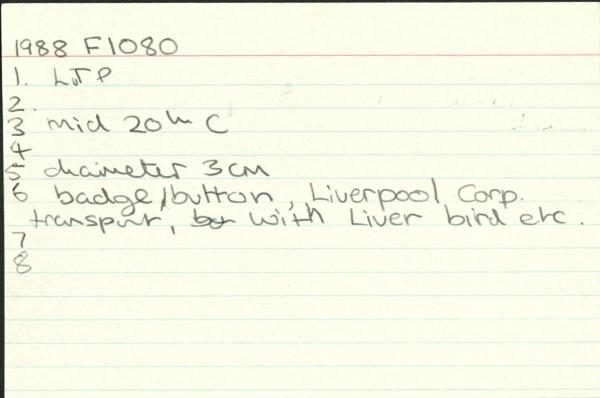 1988 F1080
1. LTP
2.
3 mid 20th C
4
5 diameter 3cm
6 badge/button, Liverpool Corp.
transport, by with Liver bird etc.
7
8